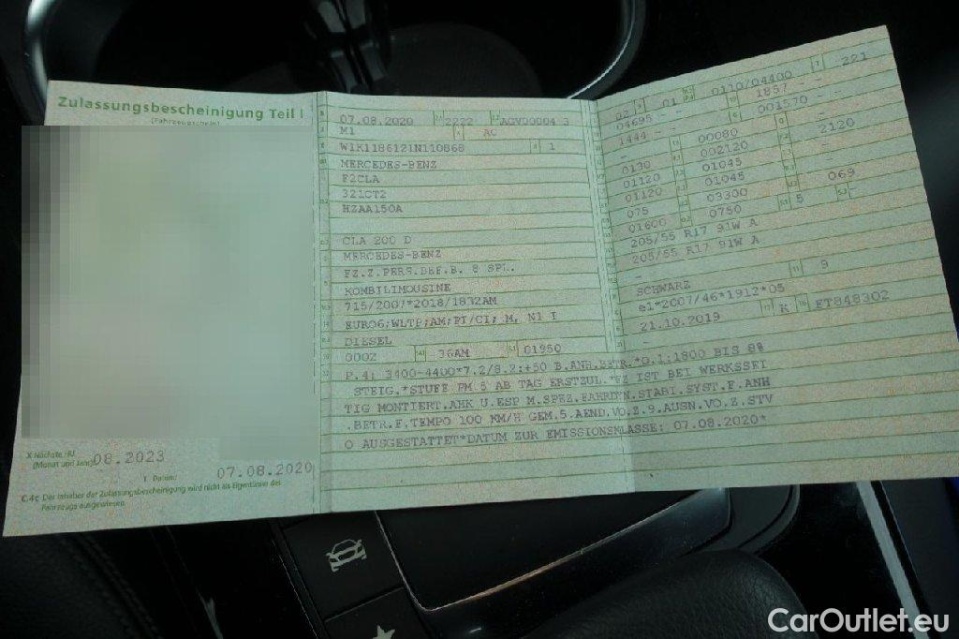 Zulassungsbescheinigung Teil I
08.2023
07.08.2020
C.4c Der Inhaber der Zulassungsbescheinigung wird nicht als Eigentümer des
Fahrzeugs ausgewiesen.
07.08.2020 2222
M1 AC
W1K1186121N110868 1
MERCEDES-BENZ
F2CLA
HZAA150A
CLA 200 D
MERCEDES-BENZ
FZ.Z.PERS.BEF.B. 8 SPL.
KOMBILIMOUSINE
715/2007*2018/1832AM
EURO6;WLTP;AM;PI/CI; M, N1 I
DIESEL
0002 36AM 01950
P.4: 3400-4400*7.2/8.2:+50 B.ANH.BETR.*O.1:1800 BIS 8%
STEIG.*STUFE PM 5 AB TAG ERSTZUL.*FZ IST BEI WERKSSEI
TIG MONTIERT.AHK U.ESP M.SPEZ.FAHRDYN.STABI.SYST.F.ANH
.BETR.F.TEMPO 100 KM/H GEM.5.AEND.VO.Z.9.AUSN.VO.Z.STV
O AUSGESTATTET*DATUM ZUR EMISSIONSKLASSE: 07.08.2020*
01 0110/04400 221
04695 -- 1857
1444 -- 001570 --
00080
0130 002120 2120
01120 01045
01120 01045
075 03300 069
01600 0750 5
205/55 R17 91W A
205/55 R17 91W A
SCHWARZ 9
e1*2007/46*1912*05
21.10.2019 K ET848302
CarOutlet.eu